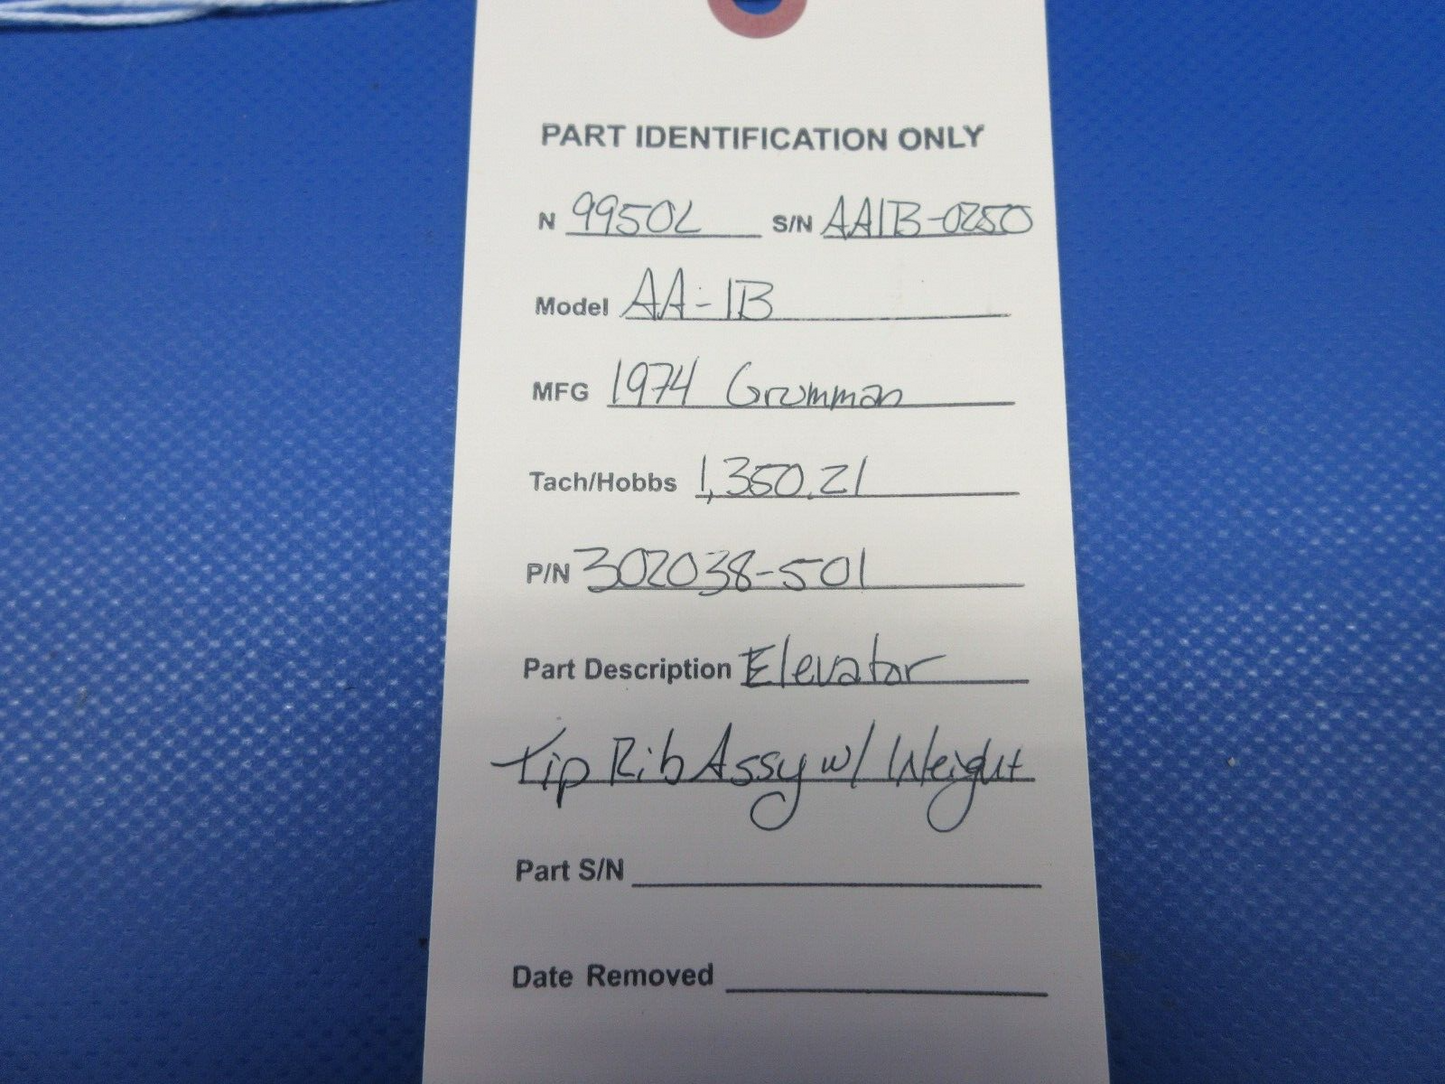 PART IDENTIFICATION ONLY
N 9950L S/N AA1B-0250
Model AA-1B
MFG 1974 Grumman
Tach/Hobbs 1,350.21
P/N 302038-501
Part Description Elevator
Tip Rib Assy w/ Weight
Part S/N
Date Removed